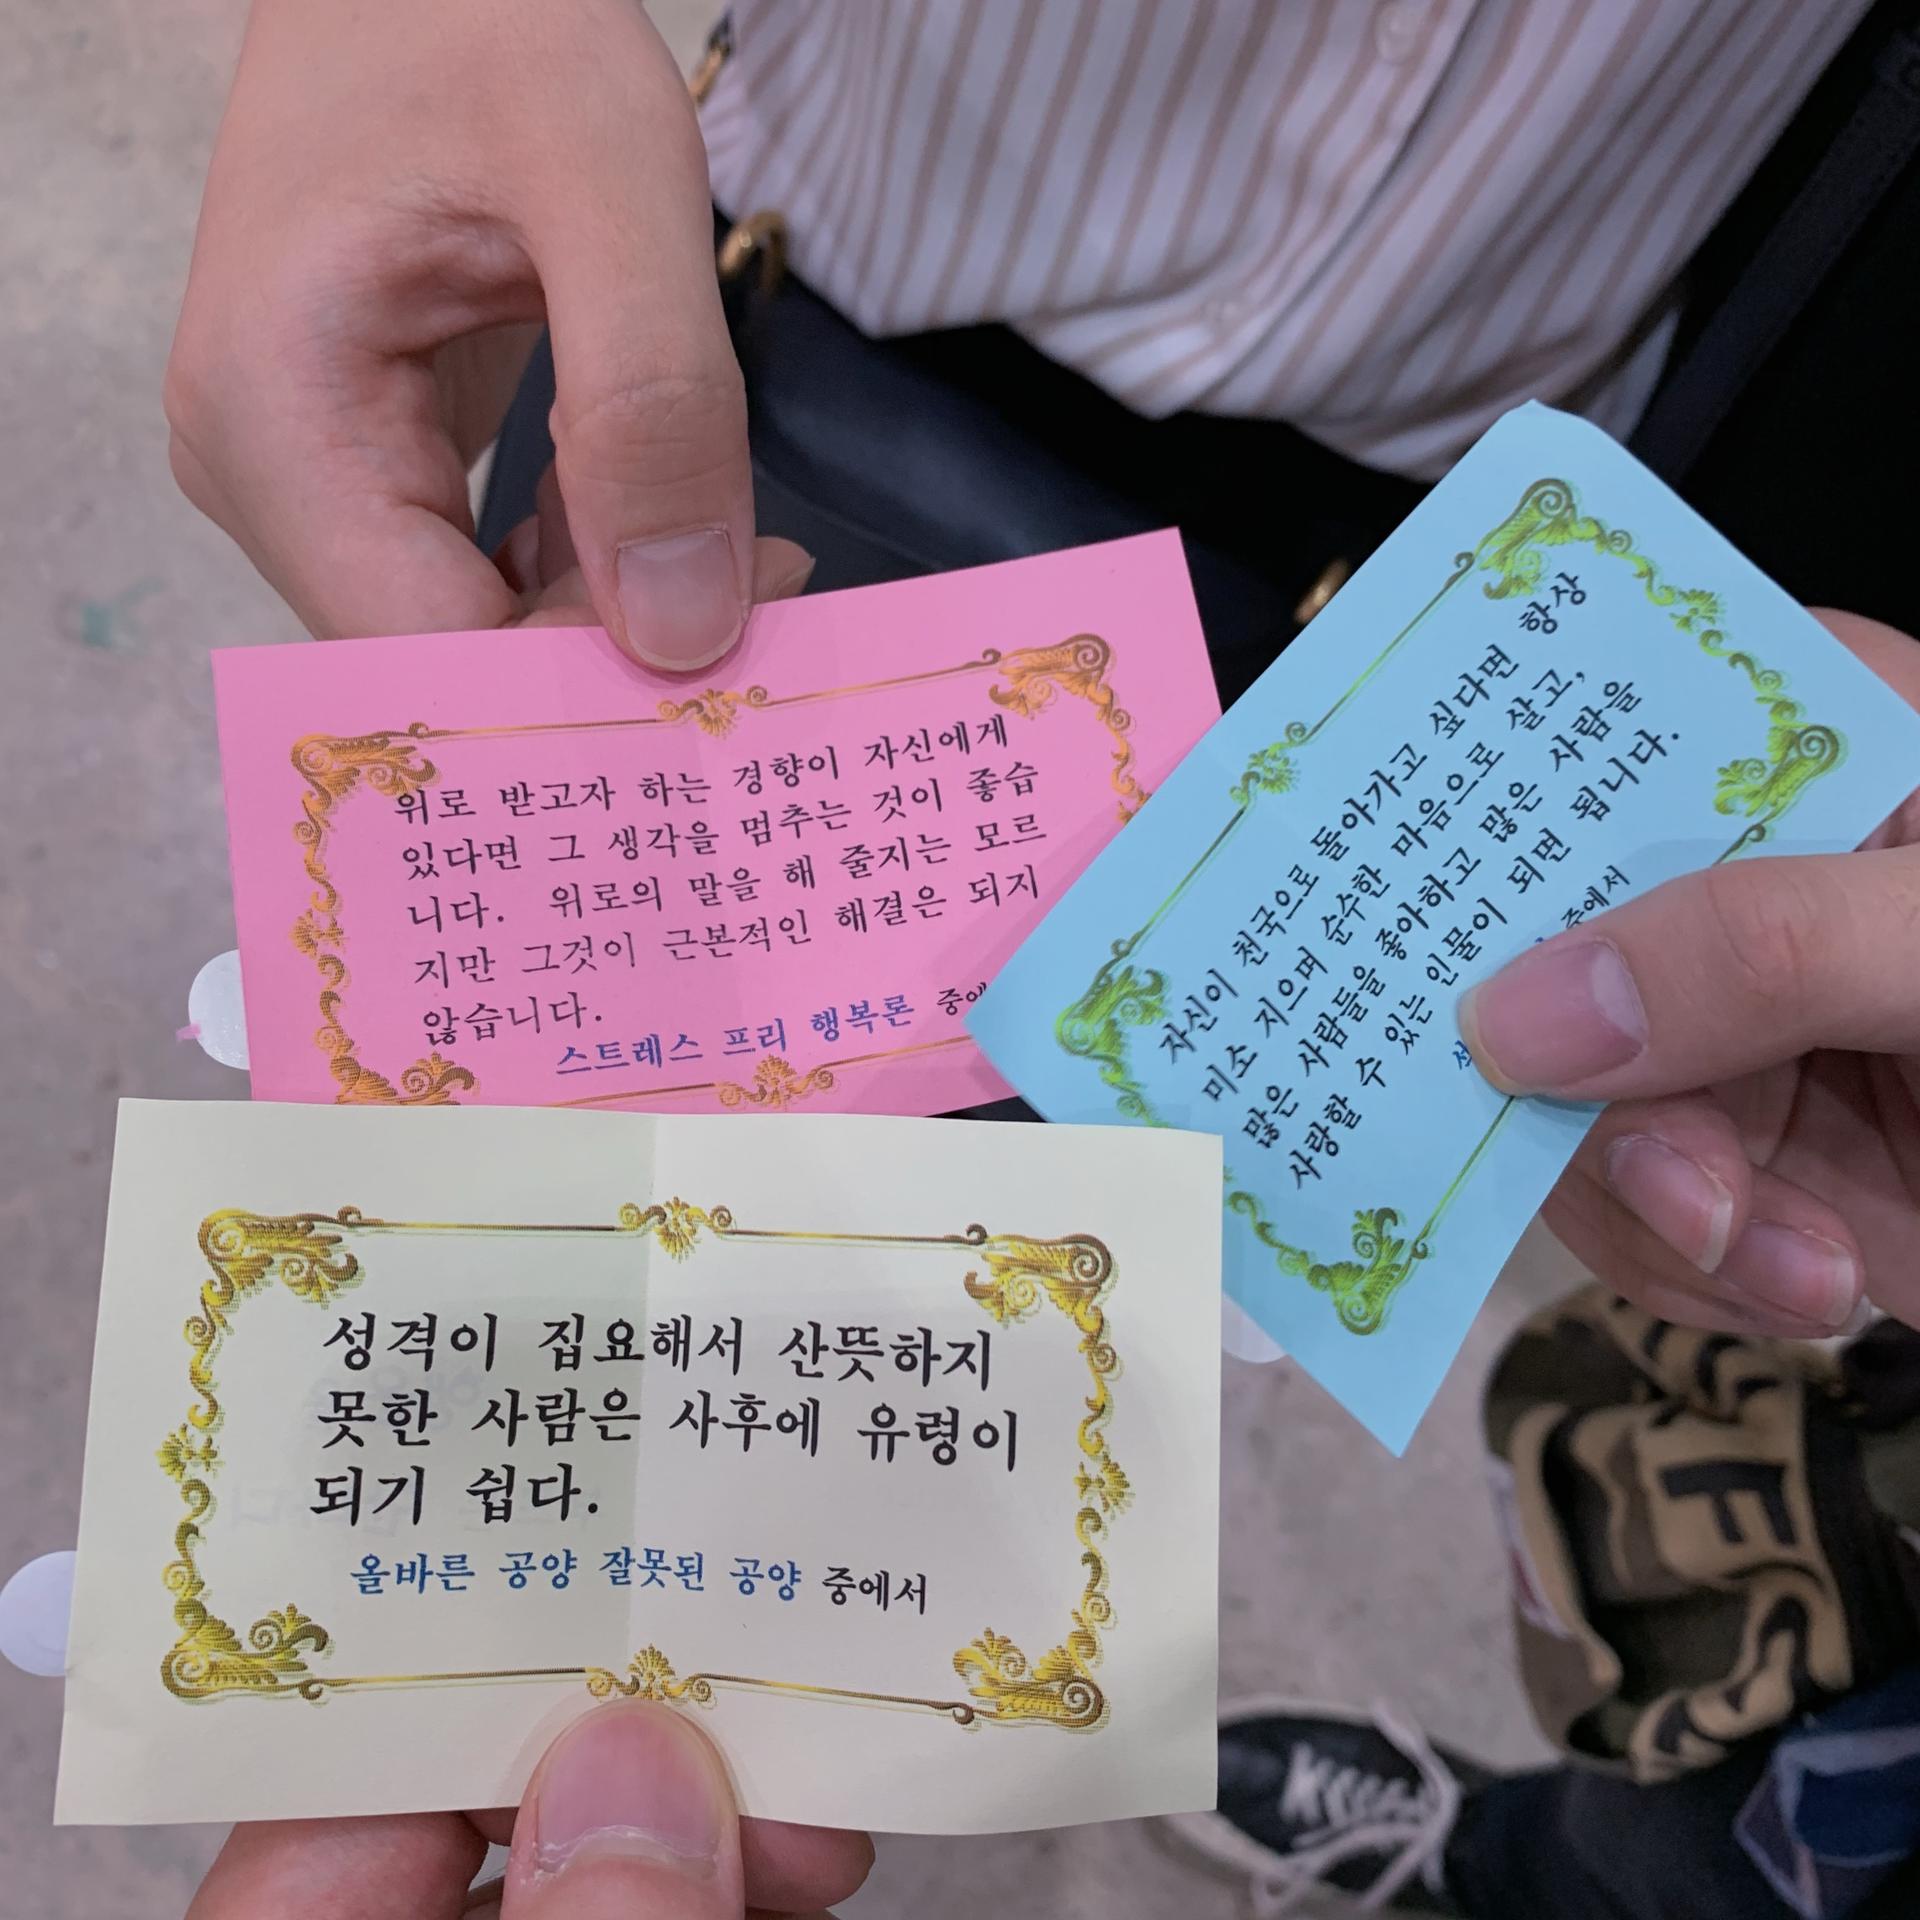 위로 받고자 하는 경향이 자신에게
있다면 그 생각을 멈추는 것이 좋습
니다. 위로의 말을 해 줄지는 모르
지만 그것이 근본적인 해결은 되지
않습니다.
스트레스 프리 행복론 중에
자신이 천국으로 돌아가고 싶다면 항상
미소 지으며 순수한 마음으로 살고,
많은 사람들을 좋아하고 많은 사람을
사랑할 수 있는 인물이 되면 됩니다.
중에서
성격이 집요해서 산뜻하지
못한 사람은 사후에 유령이
되기 쉽다.
올바른 공양 잘못된 공양 중에서
F